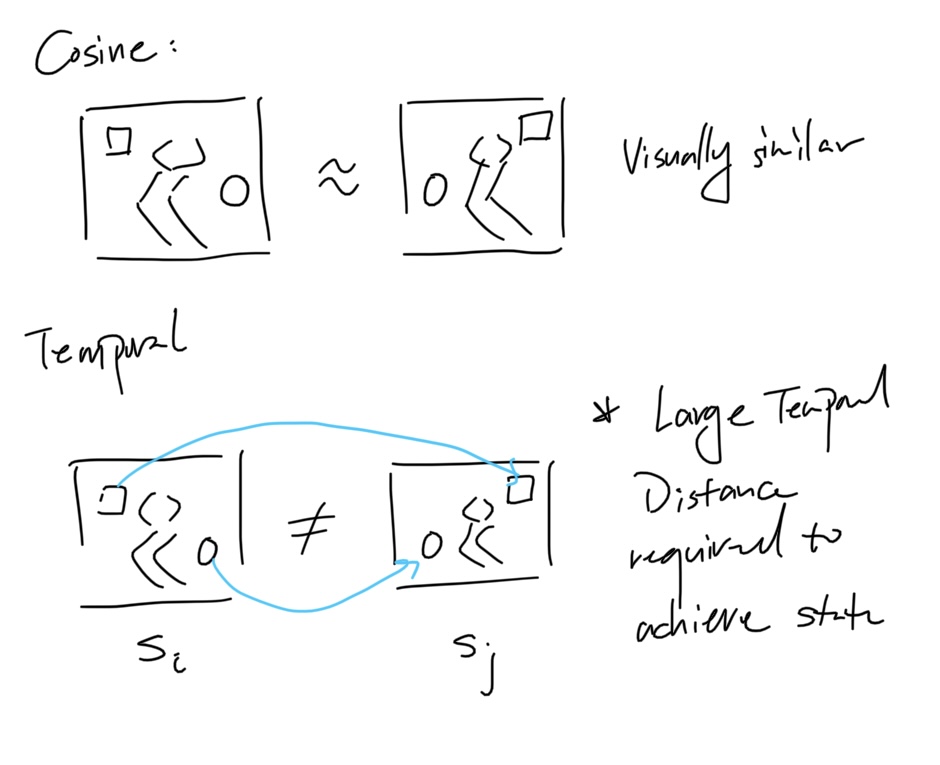 Cosine:
≈
Visually similar
Temporal
* Large Temporal
Distance
required to
achieve state
≠
Si
Sj